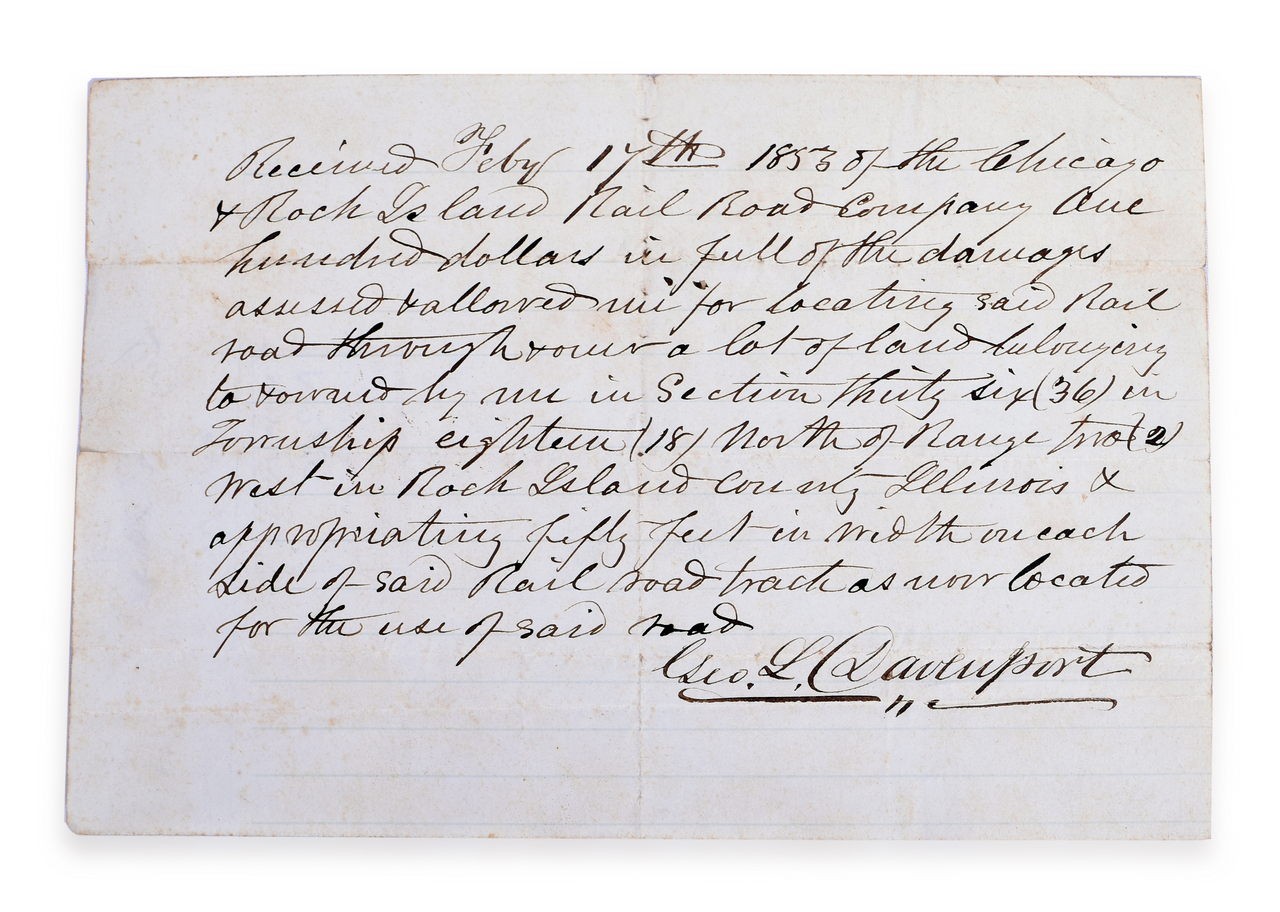 Received Feby 17th 1853 of the Chicago
& Rock Island Rail Road Company One
hundred dollars in full of the damages
assessed & allowed me for locating said Rail
road through & over a lot of land belonging
to & owned by me in Section thirty six (36) in
Township eighteen (18) North of Range two (2)
West in Rock Island County Illinois &
appropriating fifty feet in width on each
side of said Rail road track as now located
for the use of said road
Geo. L. Davenport